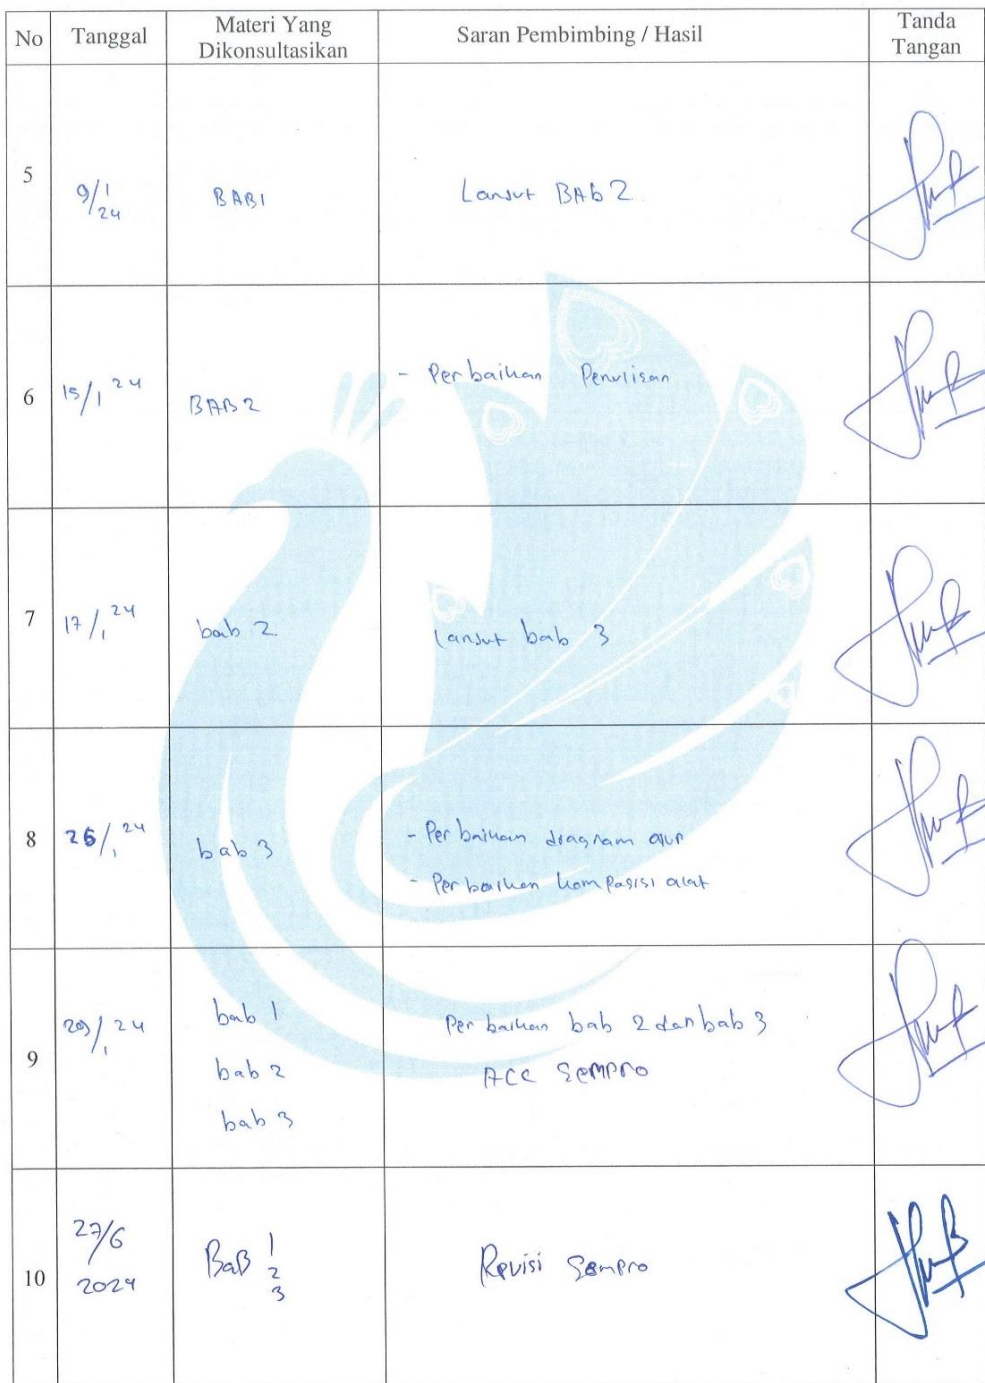 No Tanggal Materi Yang Dikonsultasikan Saran Pembimbing / Hasil Tanda Tangan
5 9/1 24 BAB1 Lanjut BAb 2
6 15/1 24 BAB2 - Perbaikan Penulisan
7 17/1 24 bab 2 Lanjut bab 3
8 26/1 24 bab 3 - Perbaikan diagram alur
- Perbaikan komposisi alat
9 29/1 24 bab 1 Perbaikan bab 2 dan bab 3
bab 2 ACC Sempro
bab 3
10 27/6 2024 BaB 1 2 3 Revisi Sempro